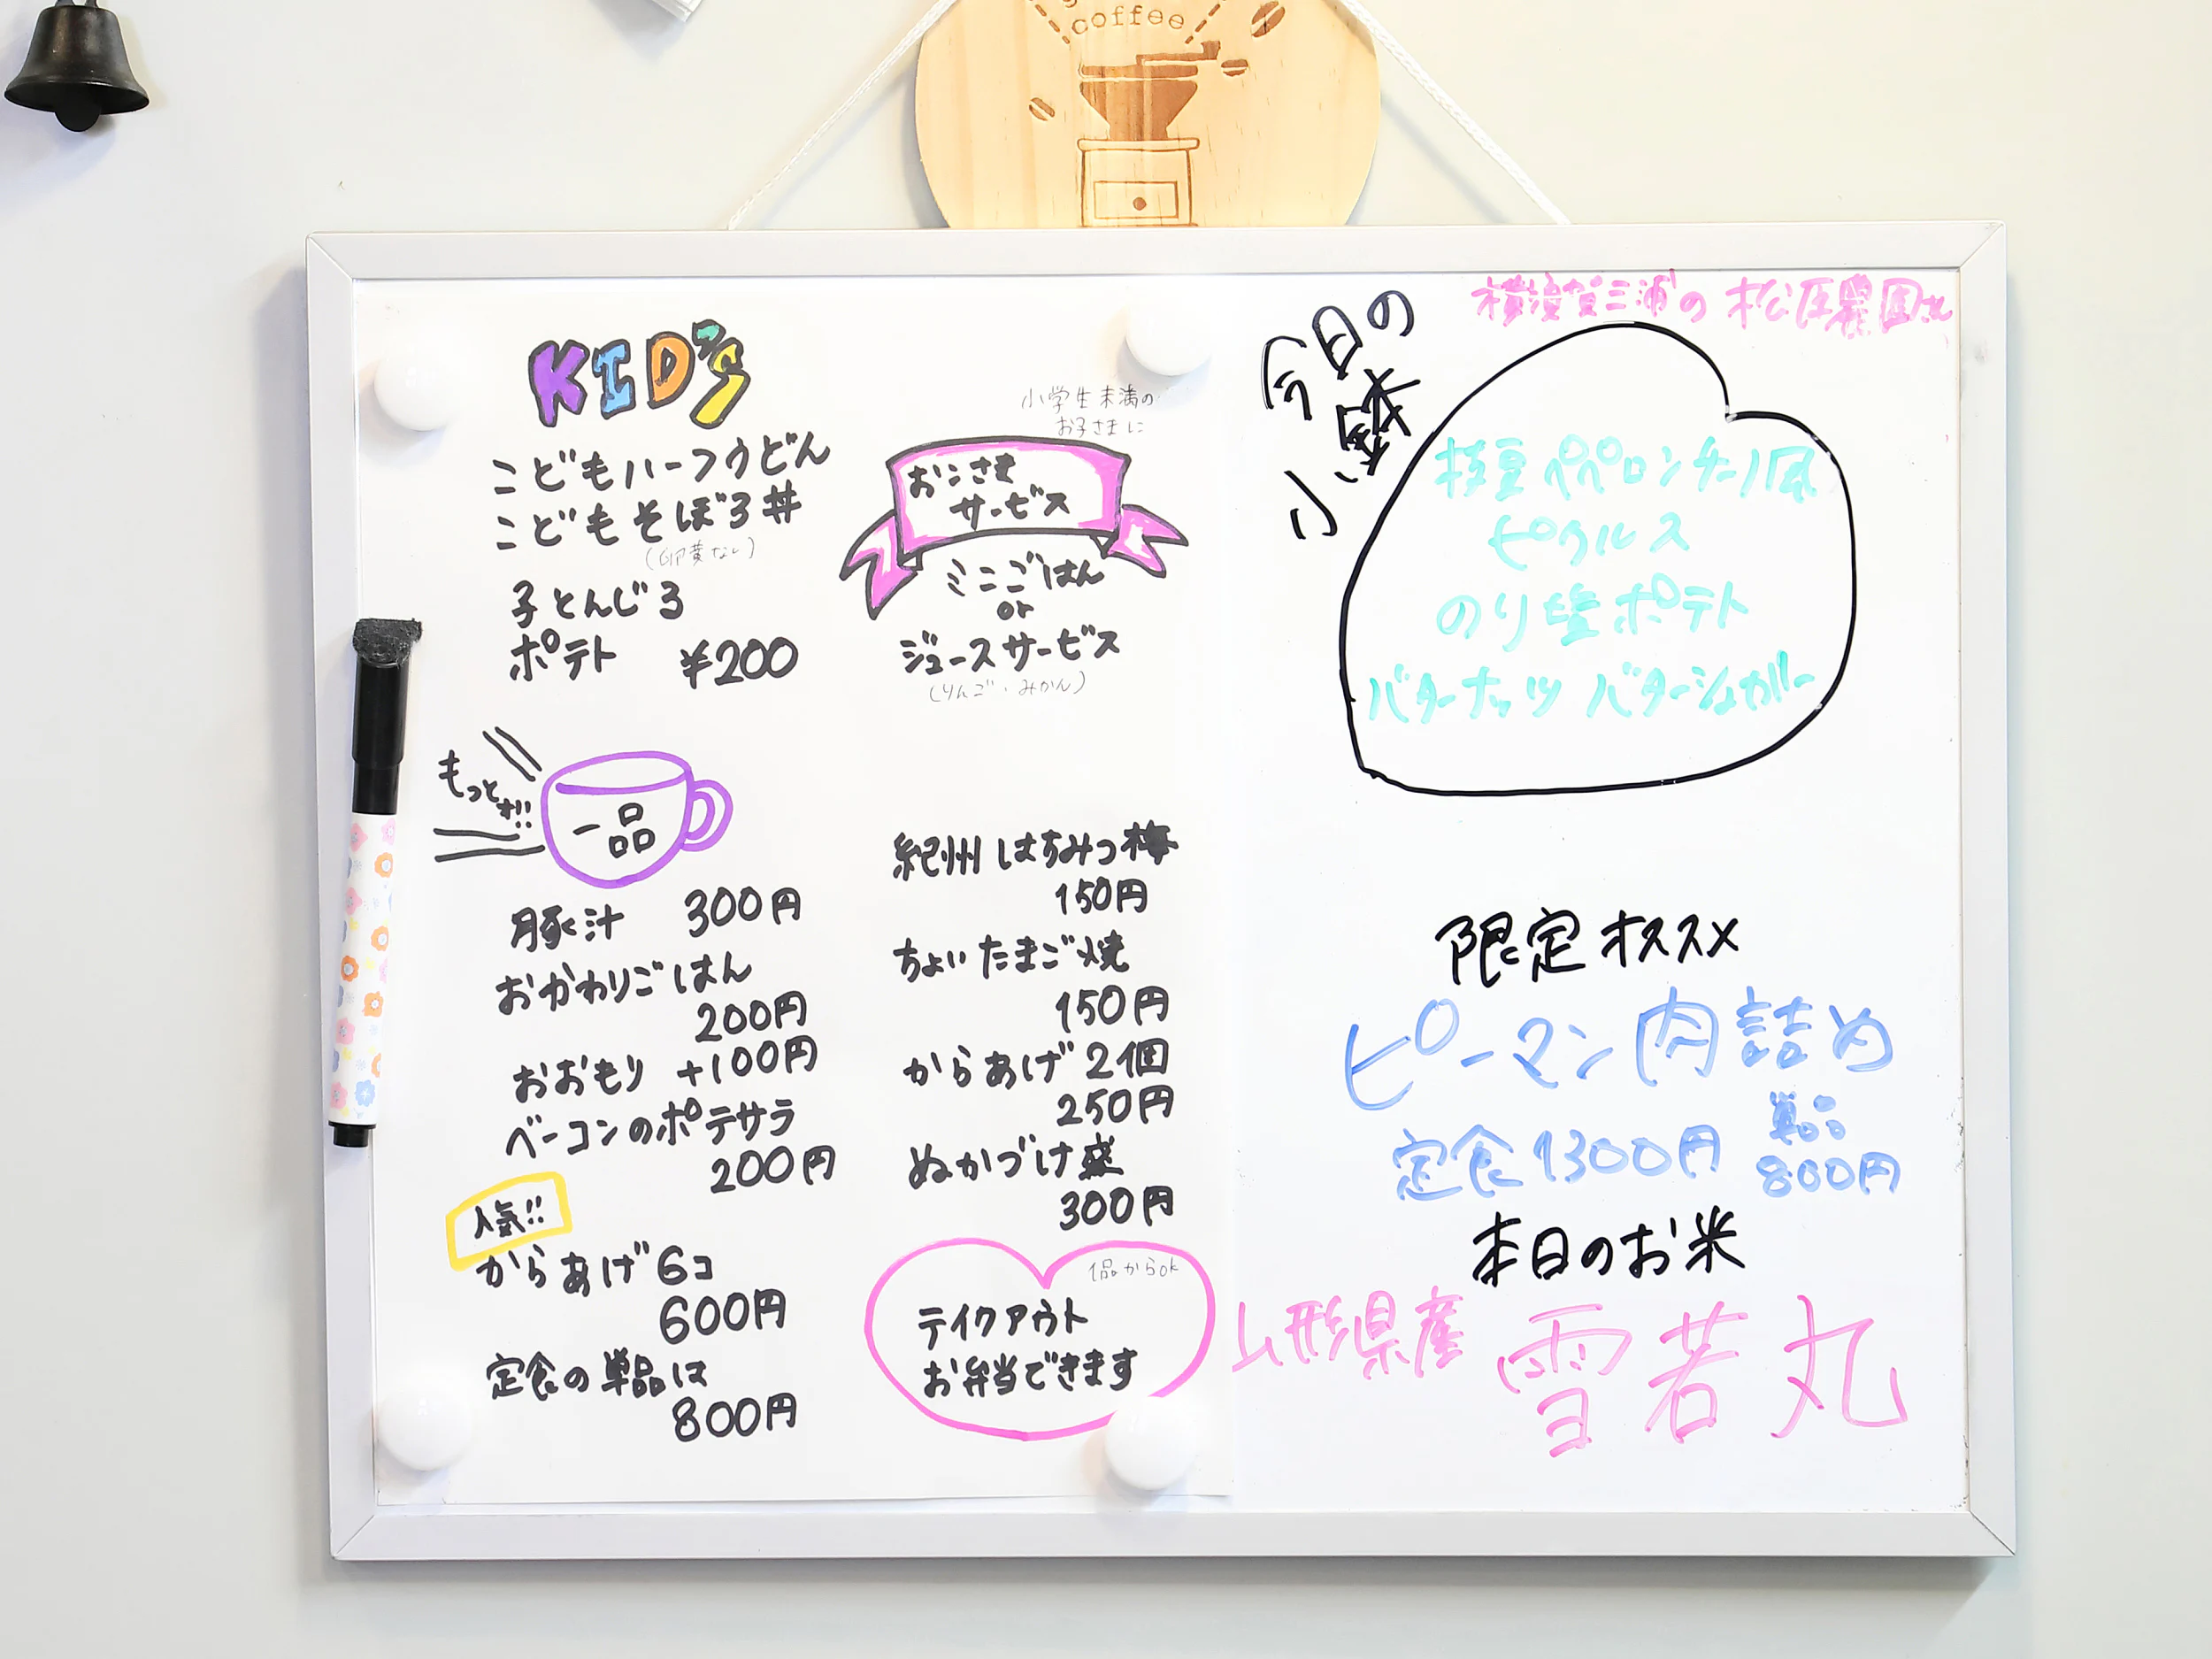 coffee
KID's
こどもハーフうどん
こどもそぼろ丼
(卵黄なし)
子とんじる
ポテト ¥200
小学生未満の
お子さまに
おこさま
サービス
ミニごはん
or
ジュースサービス
(りんご・みかん)
もっと
一品
豚汁 300円
おかわりごはん
200円
おおもり +100円
ベーコンのポテサラ
200円
人気!!
からあげ 6コ
600円
定食の単品は
800円
紀州はちみつ梅
150円
ちょいたまご焼
150円
からあげ 2個
250円
ぬかづけ盛
300円
1品からok
テイクアウト
お弁当できます
横須賀三浦の
今日の
小鉢
枝豆ペペロンチーノ風
ピクルス
のり塩ポテト
バターナッツ バターシュガー
限定オススメ
ピーマン肉詰め
定食1300円 単品
800円
本日のお米
山形県産 雪若丸